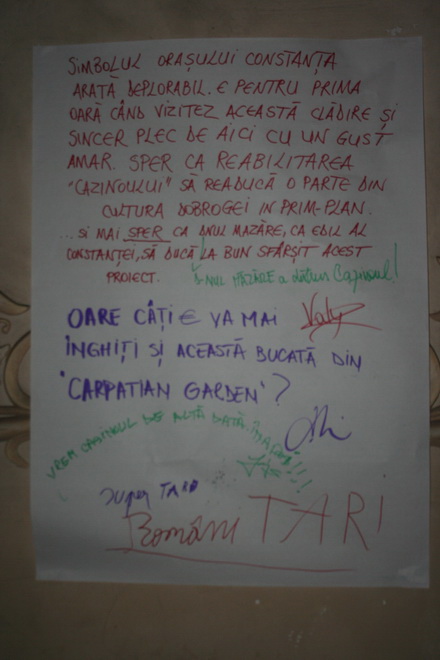 SIMBOLUL ORAȘULUI CONSTANȚA
ARATĂ DEPLORABIL. E PENTRU PRIMA
OARĂ CÂND VIZITEZ ACEASTĂ CLĂDIRE ȘI
SINCER PLEC DE AICI CU UN GUST
AMAR. SPER CA REABILITAREA
"CAZINOULUI" SĂ READUCĂ O PARTE DIN
CULTURA DOBROGEI IN PRIM-PLAN.
...SI MAI SPER CA DNUL MAZĂRE, CA EDIL AL
CONSTANȚEI, SĂ DUCĂ LA BUN SFÂRȘIT ACEST
PROIECT.
D-NUL MAZĂRE a Cazinoul!
OARE CÂȚI € VA MAI
ÎNGHIȚI SI ACEASTĂ BUCATĂ DIN
"CARPATIAN GARDEN"?
VREM CASINOUL DE ALTĂ DATĂ ÎNAPOI!!!
super TARE
Români TARI